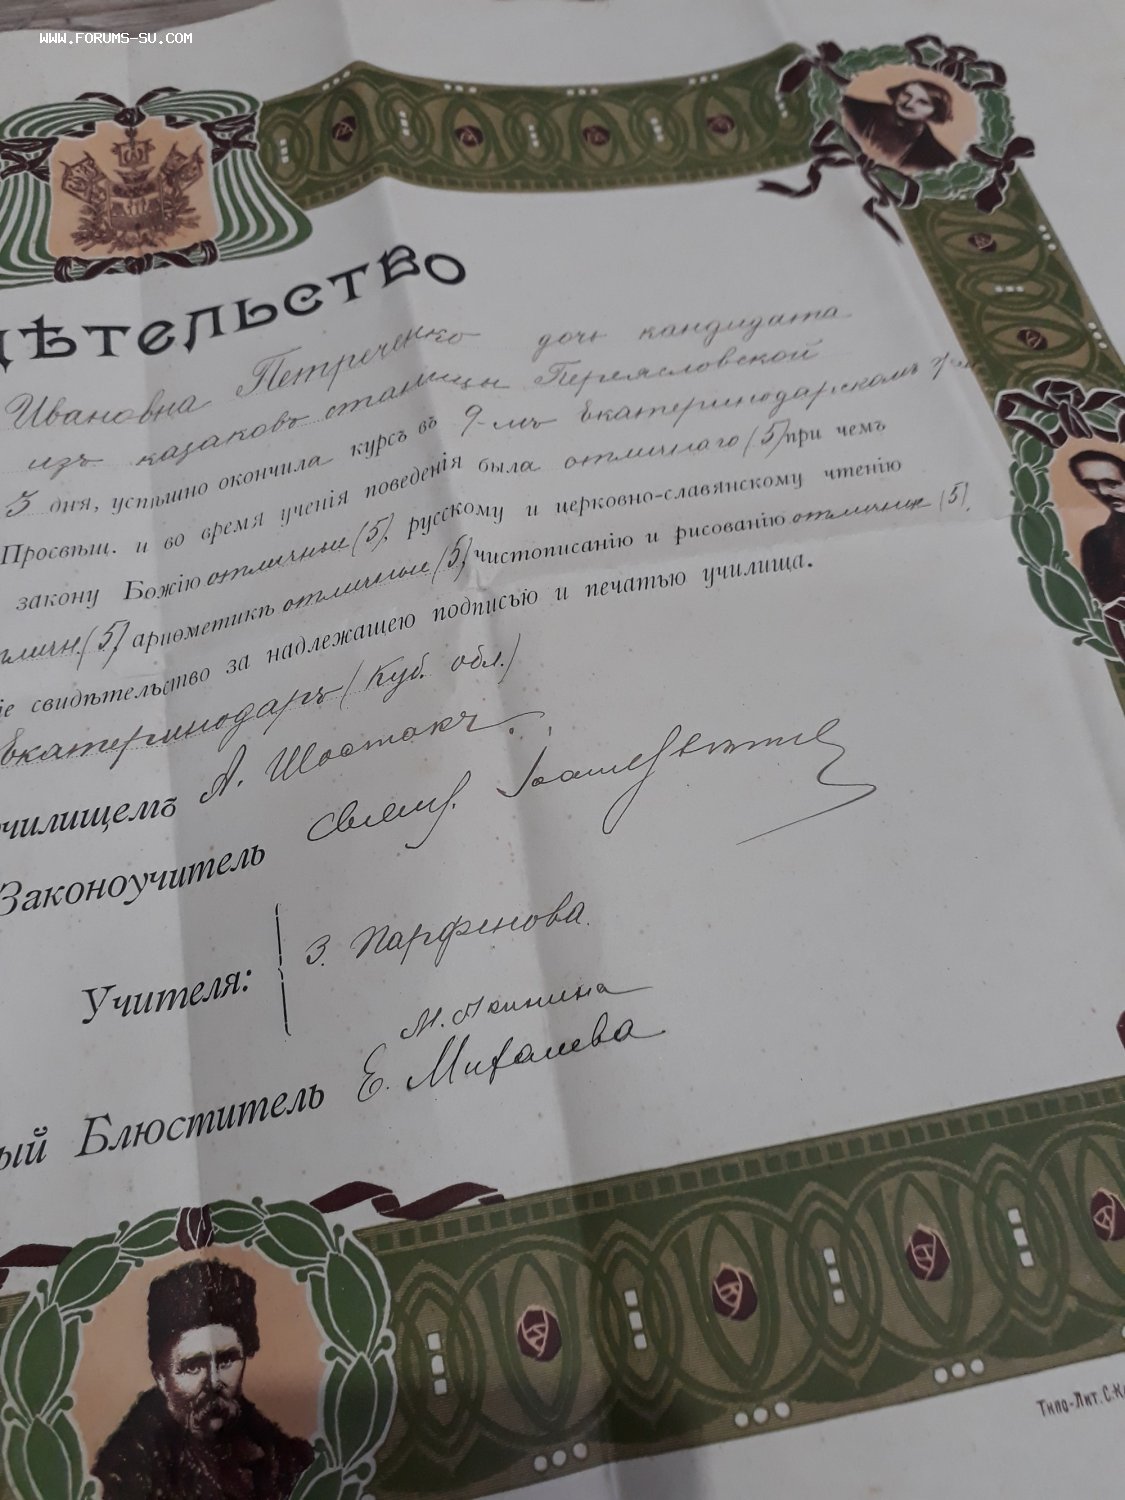 WWW.FORUMS-SU.COM
ѣтельство
Ивановна Петриченко дочь кандидата
изъ казаковъ станицы Переясловской
3 дня, успѣшно окончила курсъ въ 9-мъ Екатеринодарскомъ
Просвѣщ. и во время ученія поведенія была отличнаго (5) при чемъ
закону Божію отличные (5), русскому и церковно-славянскому чтенію
(5), ариѳметикѣ отличные (5), чистописанію и рисованію отличные (5).
свидѣтельство за надлежащею подписью и печатью училища.
Екатеринодаръ (Куб. обл.)
училищемъ А. Шостакъ
Законоучитель свящ.
Учителя: З. Парфенова.
М. Акинина
ый Блюститель Е. Михалева
Типо-Лит. С.К